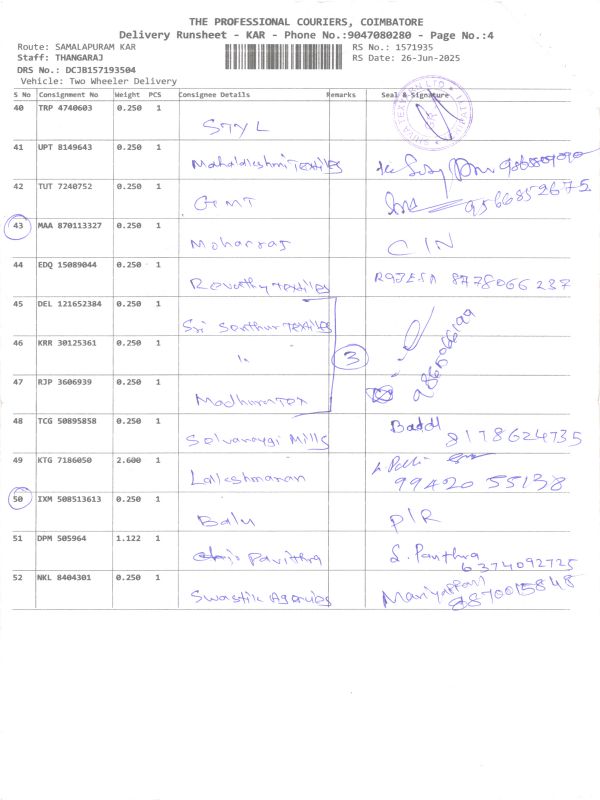 THE PROFESSIONAL COURIERS, COIMBATORE
Delivery Runsheet - KAR - Phone No.:9047080280 - Page No.:4
Route: SAMALAPURAM KAR
RS No.: 1571935
Staff: THANGARAJ
RS Date: 26-Jun-2025
DRS No.: DCJB157193504
Vehicle: Two Wheeler Delivery
S No Consignment No Weight PCS Consignee Details Remarks Seal & Signature
40 TRP 4740603 0.250 1
STYL
41 UPT 8149643 0.250 1
Mahalakshmi Textiles
42 TUT 7240752 0.250 1
GMT 9566852675
43 MAA 870113327 0.250 1
Mohanraj CIN
44 EDQ 15089044 0.250 1
Revathy Textiles 8778066237
45 DEL 121652384 0.250 1
Sri Senthur Textiles
46 KRR 30125361 0.250 1
3
47 RJP 3606939 0.250 1
Madhura Tex
48 TCG 50895858 0.250 1
Selvaraygi Mills 8178624735
49 KTG 7186050 2.600 1
Lakshmanan 99420 55138
50 IXM 508513613 0.250 1
Balu P/R
51 DPM 505964 1.122 1
Pavithra S. Pavithra
6374092725
52 NKL 8404301 0.250 1
Swastik Agencies Mariyappan